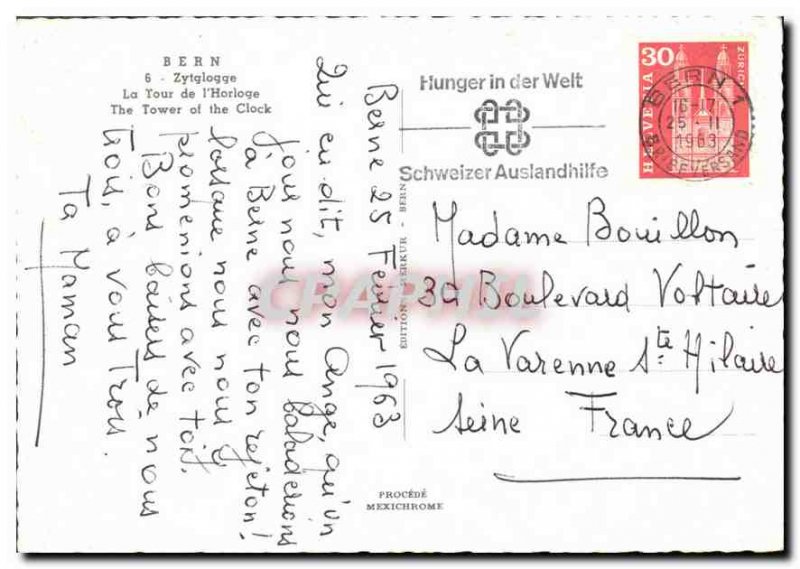 BERN
6 - Zytglogge
La Tour de l'Horloge
The Tower of the Clock
Berne 25 Fevrier 1963
Qui eu dit, mon Ange, qu'un
jour nous nous baladerions
à Berne avec ton rejeton!
lorsque nous nous y
promenions avec toi.
Bons baisers de nous
trois, à vous Trois.
Ta Maman
EDITION GERKUR - BERN
PROCÉDÉ
MEXICHROME
Hunger in der Welt
Schweizer Auslandhilfe
HELVETIA
30
ZÜRICH
BERN 1
16-17
25 - II
1963
BRIEFVERSAND
Madame Bouillon
39 Boulevard Voltaire
La Varenne Ste Hilaire
Seine France
CPAPHIL